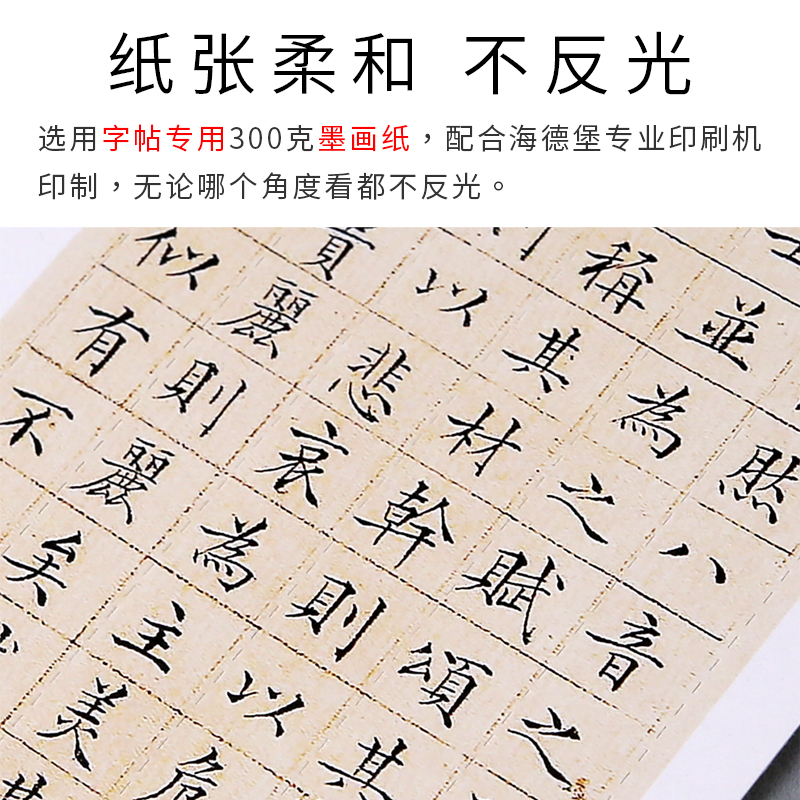 纸张柔和 不反光
选用字帖专用300克墨画纸，配合海德堡专业印刷机
印制，无论哪个角度看都不反光。
然八音之
並為之賦頌其
稱其材幹則以危
以悲哀為主美其
貴麗則麗矣
似有不